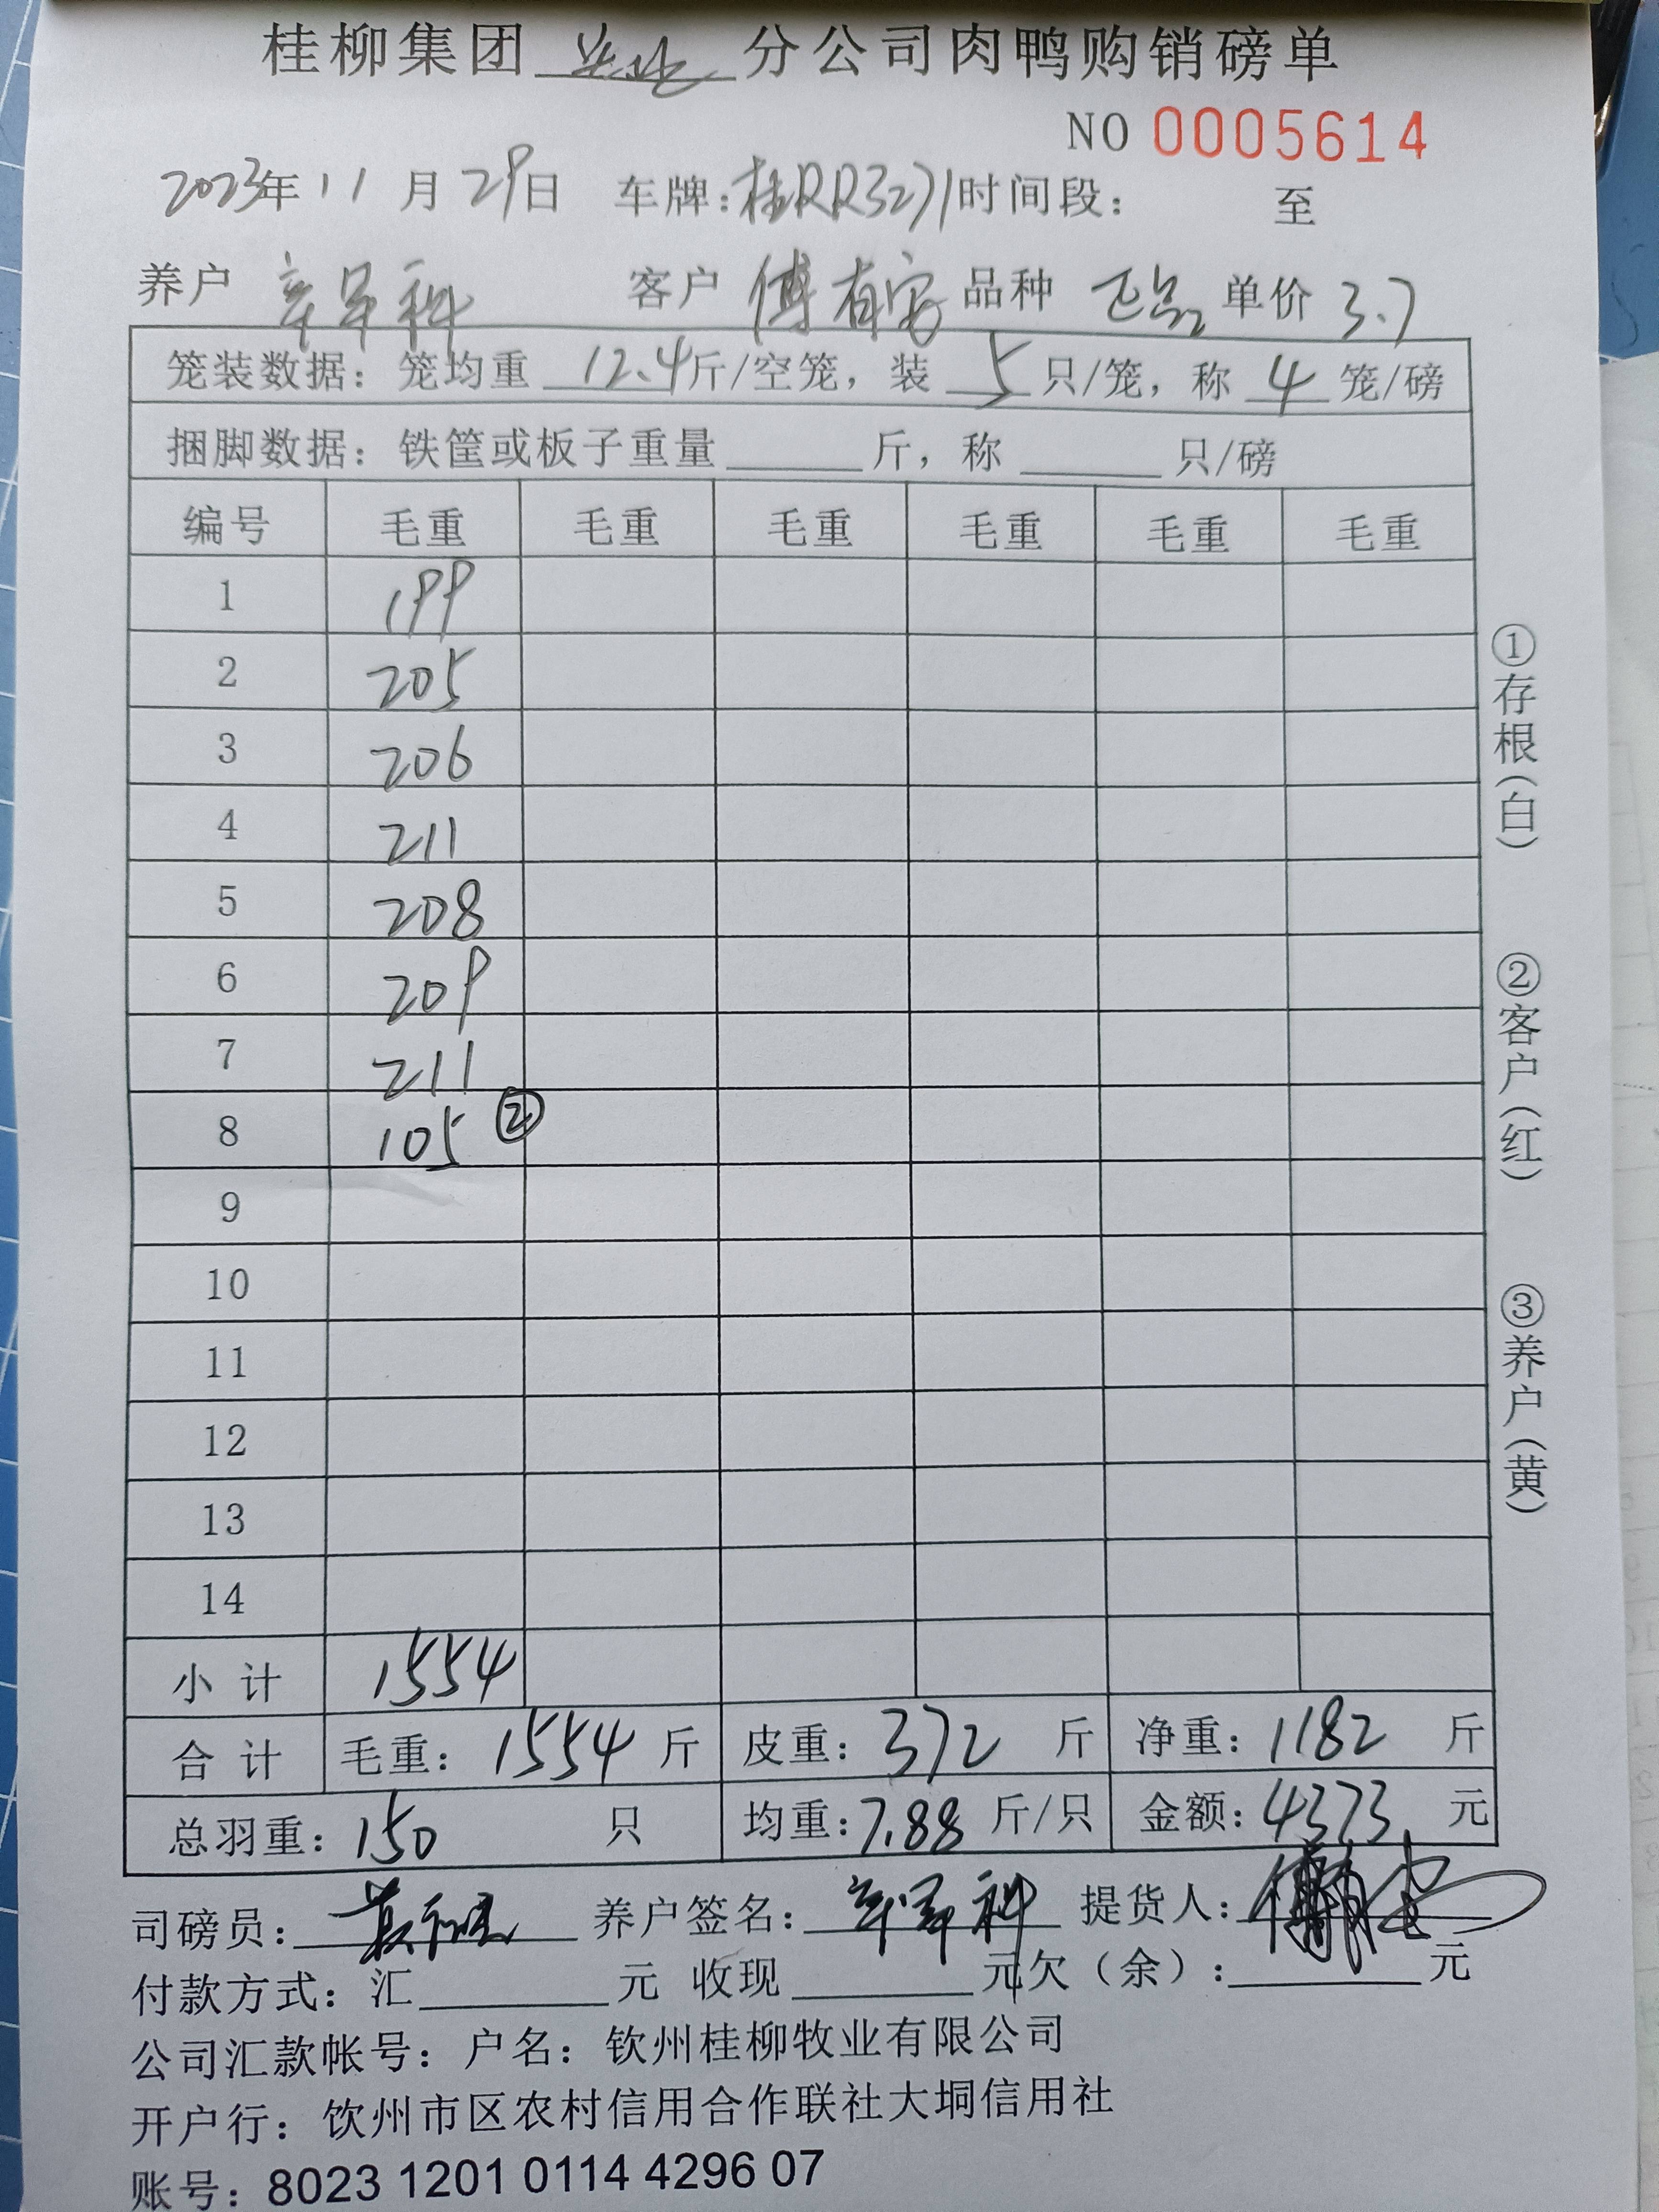 桂柳集团 分公司肉鸭购销磅单
NO 0005614
2023年 11 月 29日 车牌:桂RR3271时间段: 至
养户 客户 傅有 品种 正品 单价 3.7
笼装数据: 笼均重 12.4斤/空笼, 装 5 只/笼, 称 4 笼/磅
捆脚数据: 铁筐或板子重量 斤, 称 只/磅
编号 毛重 毛重 毛重 毛重 毛重 毛重
1 199
2 205
3 206
4 211
5 208
6 209
7 211
8 105 ②
9
10
11
12
13
14
小 计 1554
合 计 毛重: 1554 斤 皮重: 372 斤 净重: 1182 斤
总羽重: 150 只 均重: 7.88 斤/只 金额: 4373 元
司磅员: 养户签名: 提货人:
付款方式: 汇 元 收现 元 欠（余）: 元
公司汇款帐号: 户名: 钦州桂柳牧业有限公司
开户行: 饮州市区农村信用合作联社大垌信用社
账号: 8023 1201 0114 4296 07
①存根（白）
②客户（红）
③养户（黄）